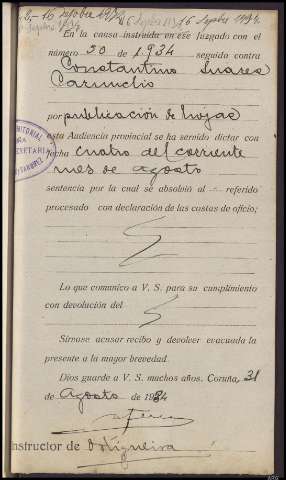 16 Sepbre 1934.
En la causa instruida en ese Juzgado con el
número 30 de 1.934 seguida contra
Constantino Suarez
Carunchio
por publicación de hojas
esta Audiencia provincial se ha servido dictar con
fecha cuatro del corriente
mes de agosto
sentencia por la cual se absolvió al referido
procesado con declaración de las costas de oficio;
Lo que comunico a V. S. para su cumplimiento
con devolución del
Sírvase acusar recibo y devolver evacuada la
presente a la mayor brevedad.
Dios guarde a V. S. muchos años. Coruña, 31
de Agosto de 1934
Instructor de Ortigueira